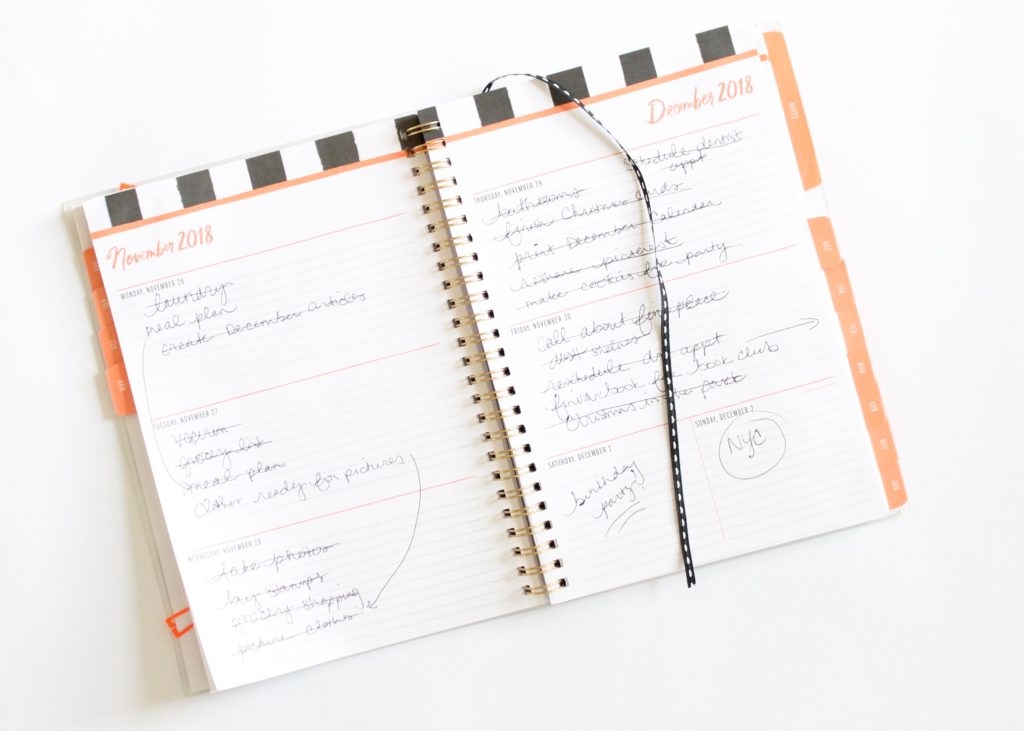 November 2018
MONDAY, NOVEMBER 26
laundry
meal plan
create December articles
TUESDAY, NOVEMBER 27
vacuum
grocery list
meal plan
clothes ready for pictures
WEDNESDAY, NOVEMBER 28
take photos
buy stamps
grocery shopping
picture clothes
December 2018
THURSDAY, NOVEMBER 29
schedule dentist
appt
bathrooms
finish Christmas cards
print December calendar
reshare pinterest
make cookies for party
FRIDAY, NOVEMBER 30
call about fireplace
dust shelves
reschedule dr appt
finish book for book club
Christmas in the park
SATURDAY, DECEMBER 1
birthday
party!
SUNDAY, DECEMBER 2
NYC
NOTES
DEC
JAN
FEB
MAR
APR
MAY